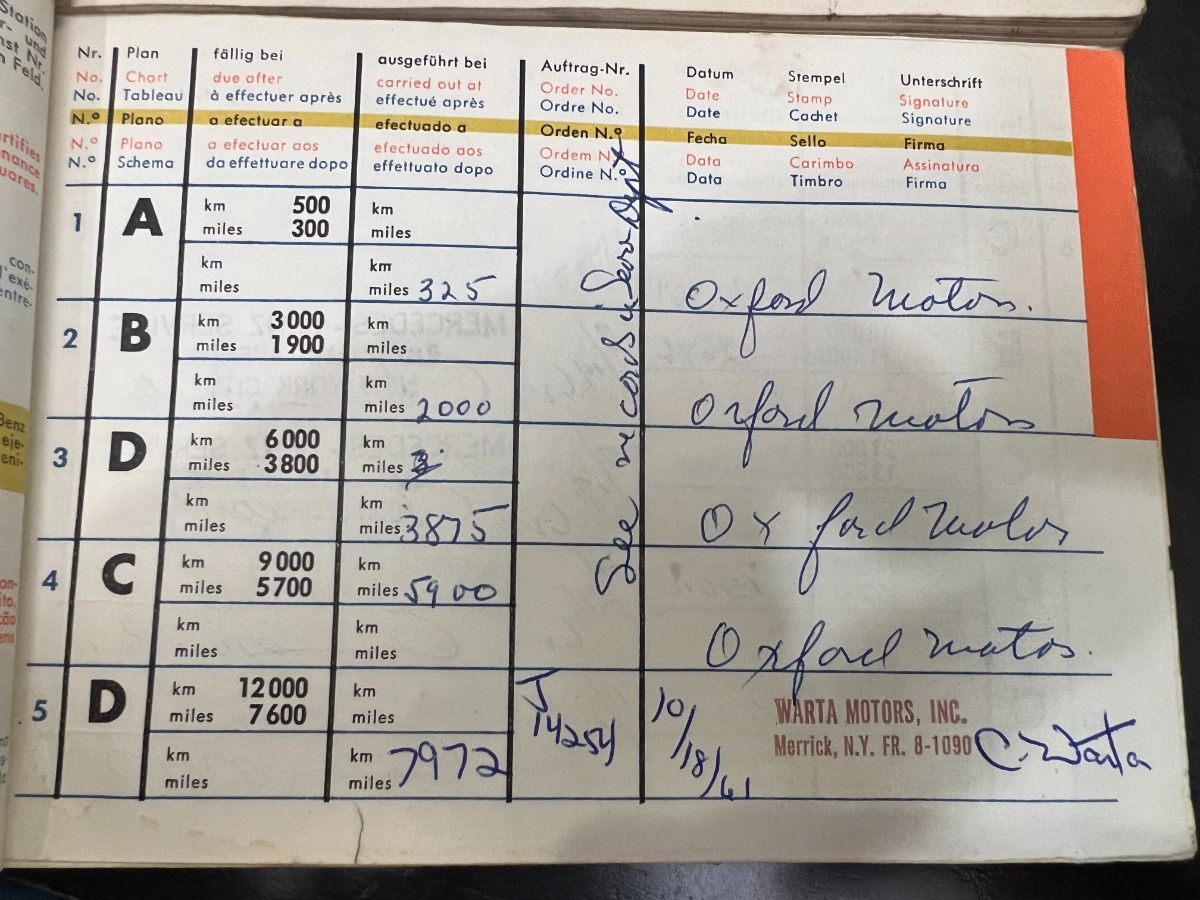 Station
r- und
nst Nr.
n Feld.
Nr. Plan fällig bei ausgeführt bei Auftrag-Nr. Datum Stempel Unterschrift
No. Chart due after carried out at Order No. Date Stamp Signature
No. Tableau à effectuer après effectué après Ordre No. Date Cachet Signature
N.º Plano a efectuar a efectuado a Orden N.º Fecha Sello Firma
N.º Plano a efectuar aos efectuado aos Ordem N.º Data Carimbo Assinatura
N.º Schema da effettuare dopo effettuato dopo Ordine N.º Data Timbro Firma
rtifies
nance
uares.
con-
l'exé-
entre-
Benz
eje-
eni-
See records Serv Dept
1 A km 500 km
miles 300 miles
km km
miles miles 325 Oxford Motors.
2 B km 3000 km
miles 1900 miles
km km
miles miles 2000 Oxford Motors
3 D km 6000 km
miles 3800 miles
km km
miles miles 3875 Oxford Motors
4 C km 9000 km
miles 5700 miles 5900
km km
miles miles Oxford Motors.
5 D km 12000 km J 14254 10/18/61 WARTA MOTORS, INC.
miles 7600 miles Merrick, N.Y. FR. 8-1090 C. Warta
km km
miles miles 7972